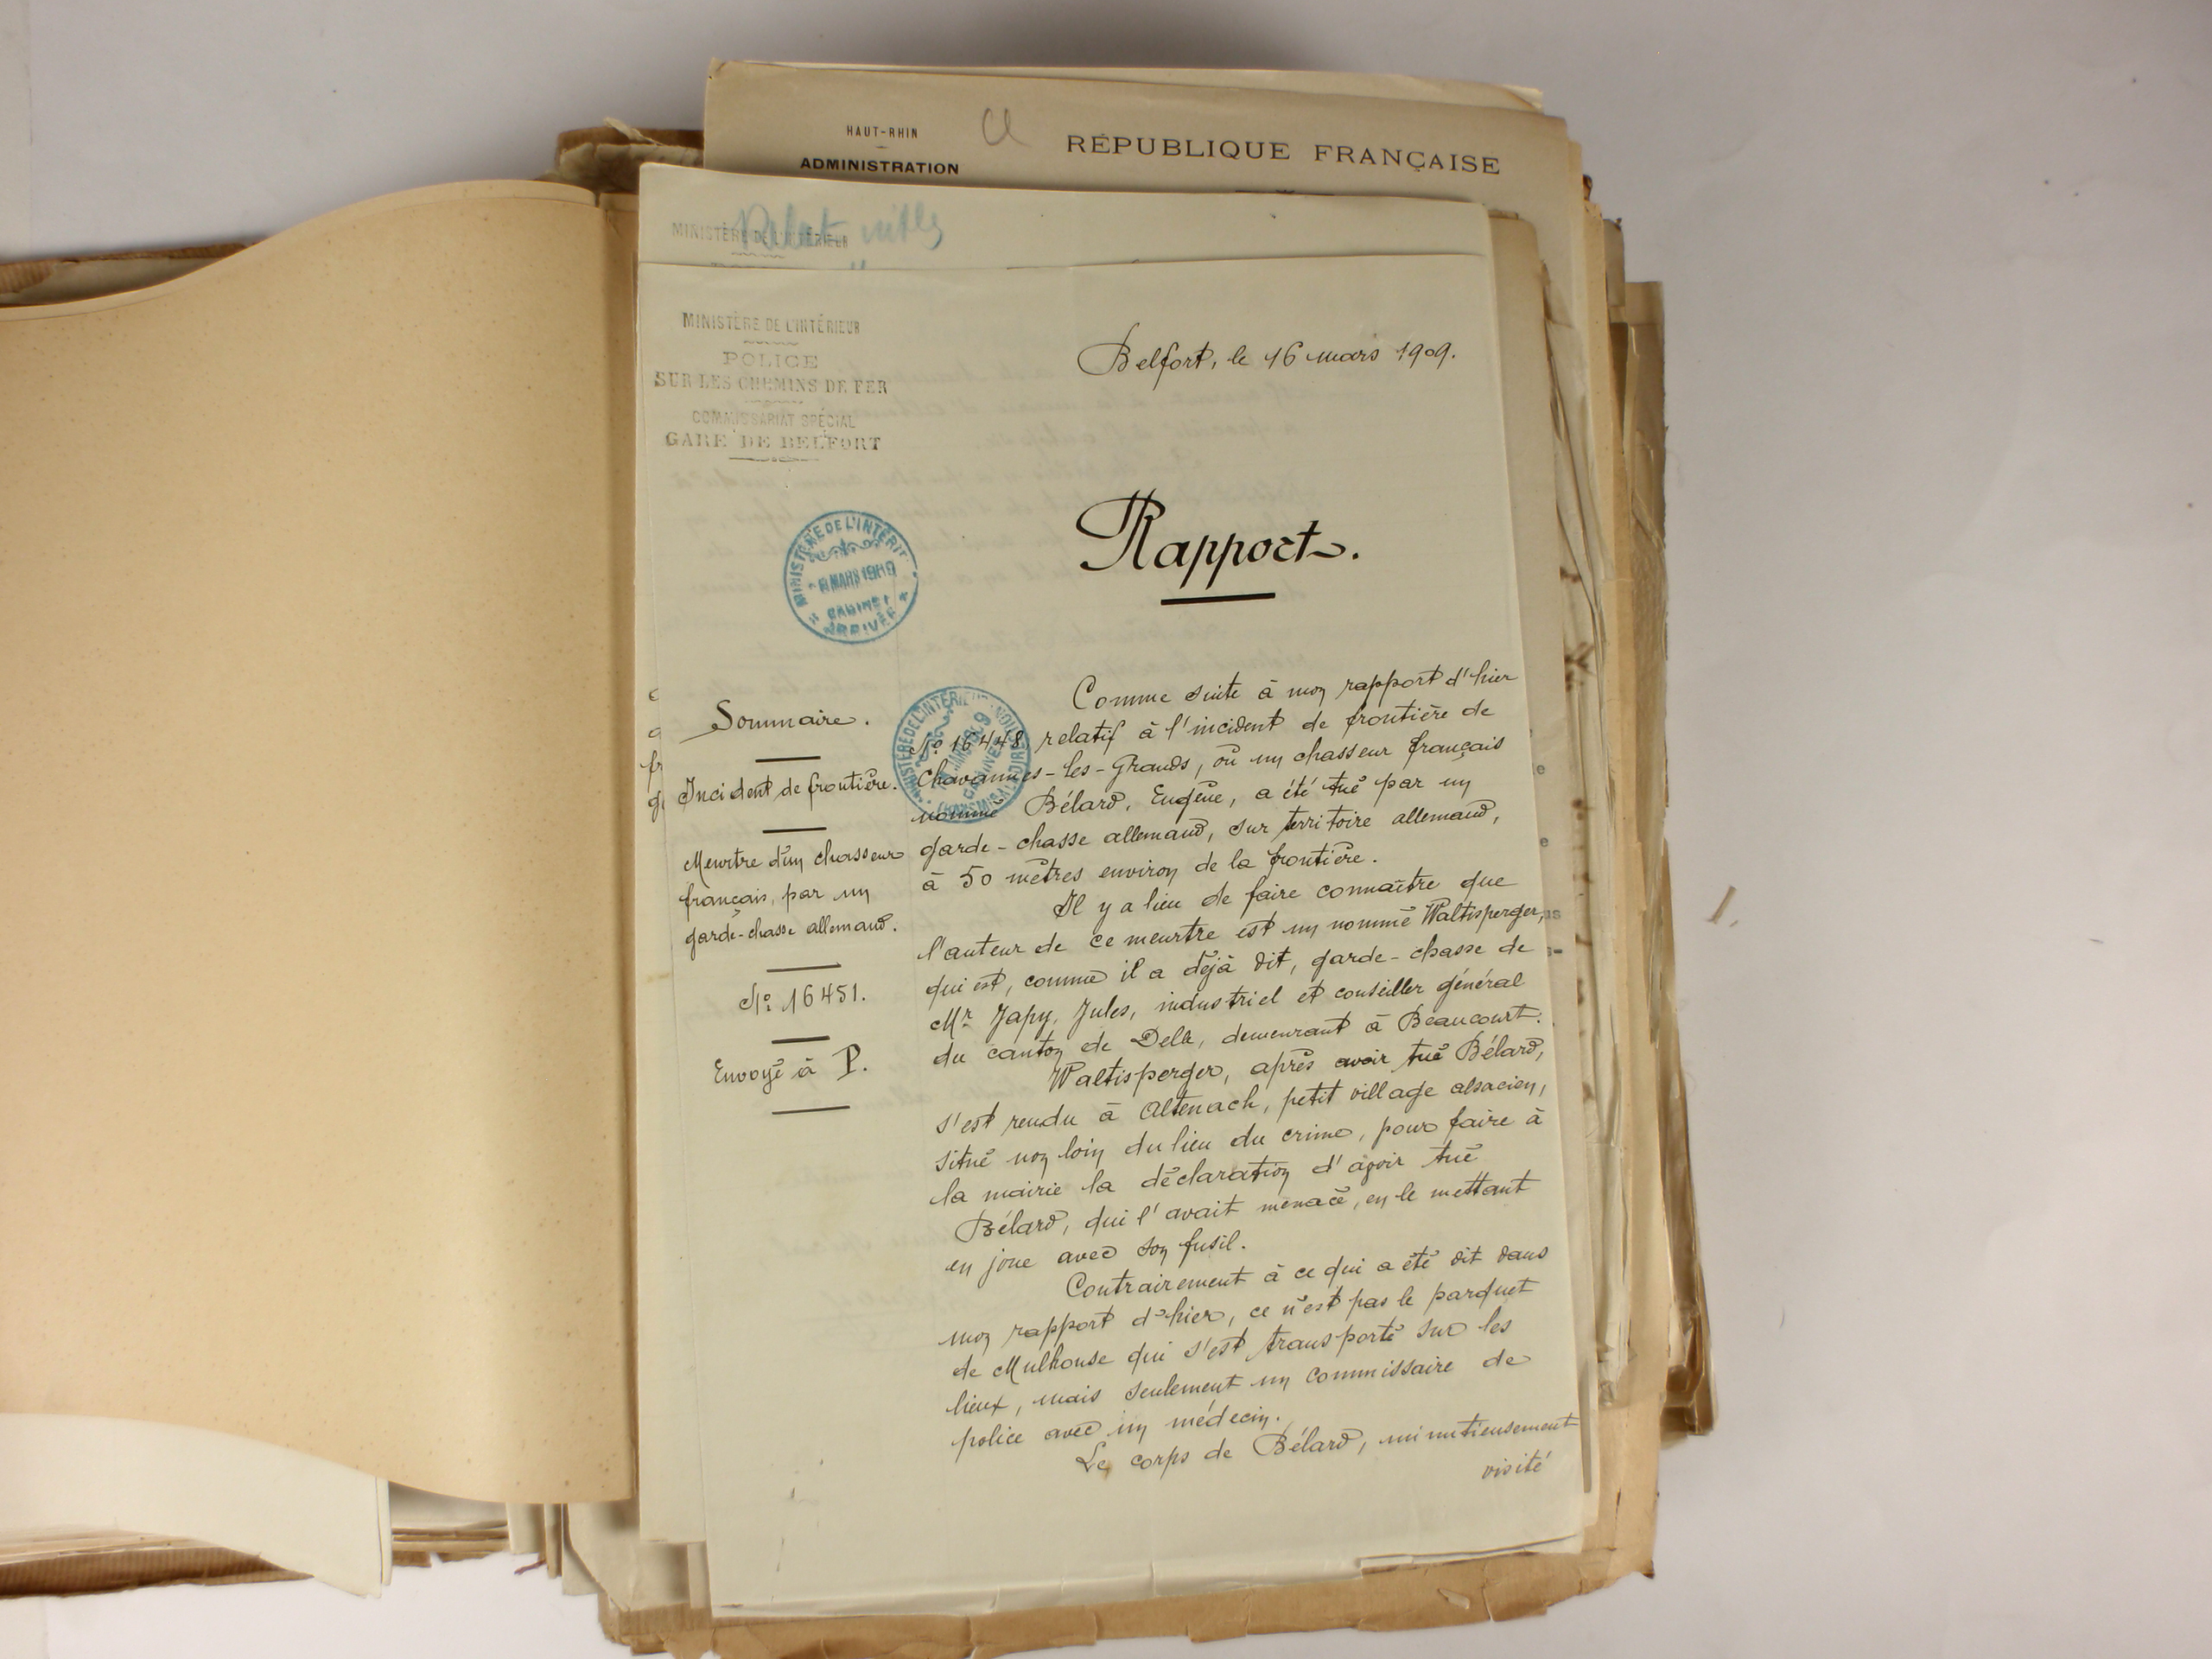 HAUT-RHIN
ADMINISTRATION
RÉPUBLIQUE FRANÇAISE
MINISTÈRE DE L'INTÉRIEUR
MINISTÈRE DE L'INTÉRIEUR
POLICE
SUR LES CHEMINS DE FER
COMMISSARIAT SPÉCIAL
GARE DE BELFORT
Belfort, le 16 mars 1909.
MINISTÈRE DE L'INTÉRIE
MARS 1909
CABINET
ARRIVÉE
Rapport.
Sommaire.
Incident de frontière.
Meurtre d'un chasseur
français, par un
garde-chasse allemand.
No 16451.
Envoyé à P.
MINISTÈRE DE L'INTÉRIEUR
CABINET
Comme suite à mon rapport d'hier
No 16448, relatif à l'incident de frontière de
Chavannes-les-Grands, où un chasseur français
nommé Bélard, Eugène, a été tué par un
garde-chasse allemand, sur territoire allemand,
à 50 mètres environ de la frontière.
Il y a lieu de faire connaître que
l'auteur de ce meurtre est un nommé Waltisperger,
qui est, comme il a déjà dit, garde-chasse de
Mr Japy, Jules, industriel et conseiller général
du canton de Delle, demeurant à Beaucourt.
Waltisperger, après avoir tué Bélard,
s'est rendu à Altenach, petit village alsacien,
situé non loin du lieu du crime, pour faire à
la mairie la déclaration d'avoir tué
Bélard, qui l'avait menacé, en le mettant
en joue avec son fusil.
Contrairement à ce qui a été dit dans
mon rapport d'hier, ce n'est pas le parquet
de Mulhouse qui s'est transporté sur les
lieux, mais seulement un commissaire de
police avec un médecin.
Le corps de Bélard, minutieusement
visité